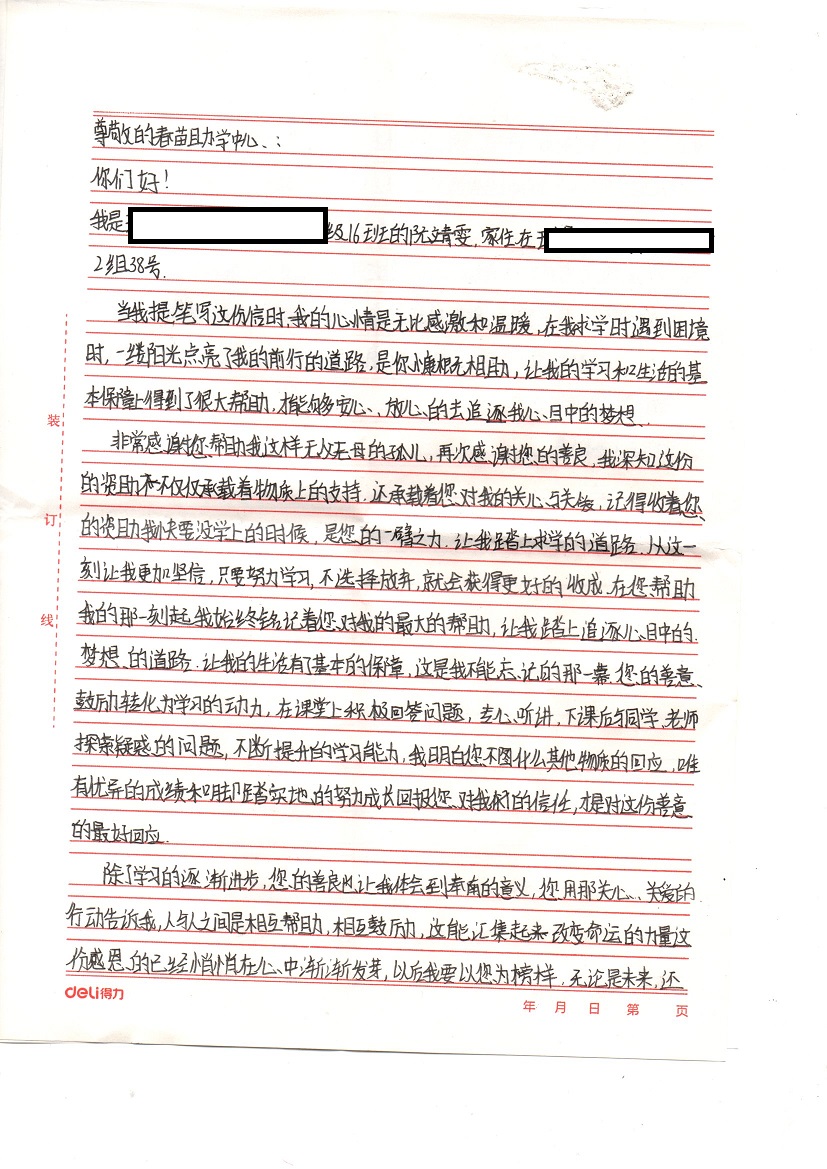 尊敬的春苗助学中心：
你们好！
我是 级16班的阮靖雯，家住在
2组38号.
当我提笔写这份信时，我的心情是无比感激和温暖，在我求学时遇到困境
时，一缕阳光点亮了我的前行的道路，是你慷慨相助，让我的学习和生活的基
本保障上得到了很大帮助，才能够多安心、放心的去追逐我心目中的梦想.
非常感谢您帮助我这样无父无母的孤儿，再次感谢您的善良，我深知这份
的资助不仅仅承载着物质上的支持.还承载着您对我的关心与关爱，记得收着您
的资助我快要没学上的时候，是您的一臂之力.让我踏上求学的道路.从这一
刻让我更加坚信，只要努力学习，不选择放弃，就会获得更好的收成.在您帮助
我的那一刻起，我始终铭记着您对我的最大的帮助，让我踏上追逐心目中的
梦想的道路.让我的生活有了基本的保障，这是我不能忘记的那一幕.您的善意、
鼓励转化为学习的动力，在课堂上积极回答问题，专心听讲，下课后与同学、老师
探索疑惑的问题，不断提升的学习能力，我明白您不图什么其他物质的回应，唯
有优异的成绩和脚踏实地的努力成长回报您对我们的信任，才是对这份善意
的最好回应.
除了学习的逐渐进步，您的善良让我体会到奉献的意义，您用那关心、关爱的
行动告诉我，人与人之间是相互帮助，相互鼓励，这能汇集起来改变命运的力量这
份感恩的已经悄悄在心中渐渐发芽，以后我要以您为榜样，无论是未来，还
装
订
线
deli得力
年 月 日 第 页